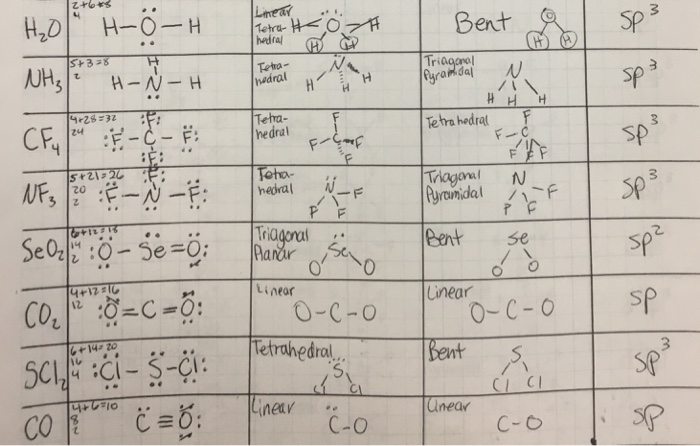 H₂O
2+6=8
4
H-Ö-H
Linear
Tetra-
hedral
H O H
H H
Bent
O
H H
sp³
NH₃
5+3=8
2
H
H-N-H
Tetra-
hedral
N
H H H
Triagonal
Pyramidal
N
H H H
sp³
CF₄
4+28=32
24
:F:
:F-C-F:
:F:
Tetra-
hedral
F
F-C-F
F
Tetrahedral
F
F-C
F F F
sp³
NF₃
5+21=26
20
2
F
:F-N-F:
Tetra-
hedral
N-F
F F
Triagonal
Pyramidal
N
F F F
sp³
SeO₂
6+12=18
14
2
:O-Se=O:
Triagonal
Planar
Se
O O
Bent
Se
O O
sp²
CO₂
4+12=16
12
:O=C=O:
Linear
O-C-O
Linear
O-C-O
sp
SCl₂
6+14=20
16
4
:Cl-S-Cl:
Tetrahedral
S
Cl Cl
Bent
S
Cl Cl
sp³
CO
4+6=10
8
2
C≡O:
Linear
C-O
Linear
C-O
sp